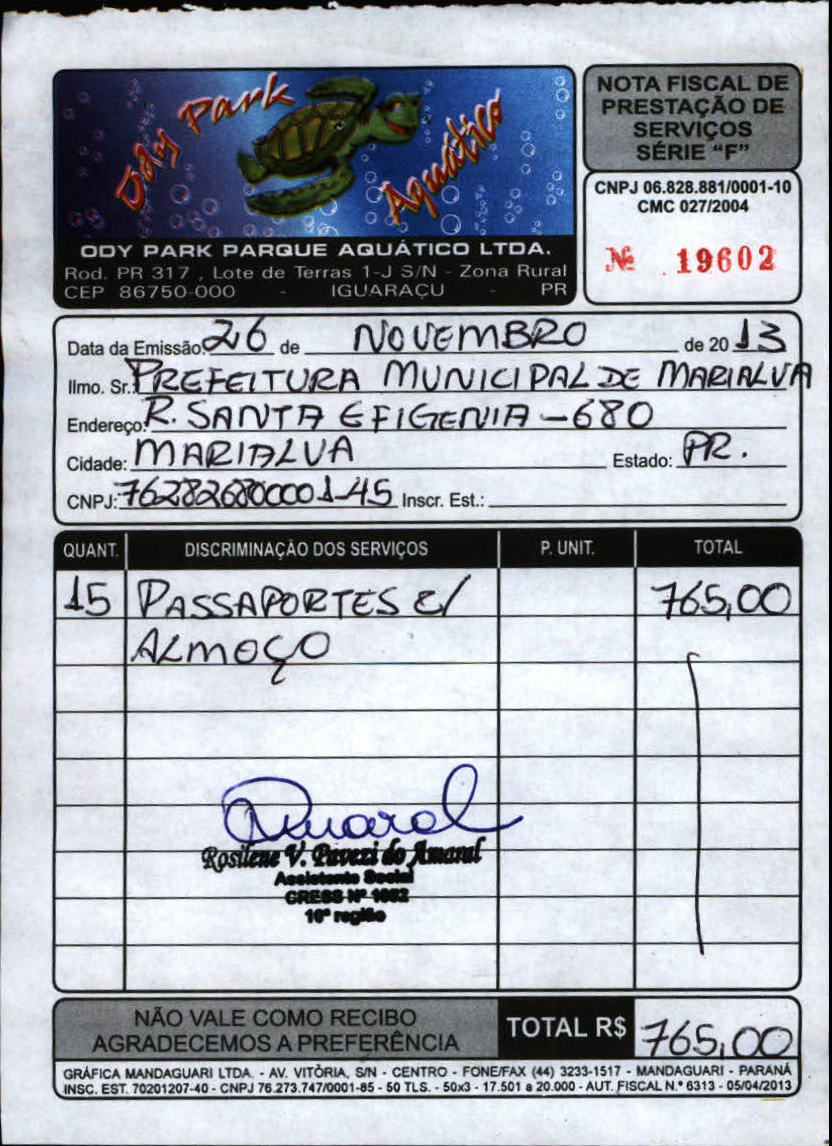 Ody Park
Aquático
ODY PARK PARQUE AQUÁTICO LTDA.
Rod. PR 317 , Lote de Terras 1-J S/N - Zona Rural
CEP 86750-000 - IGUARAÇU - PR
NOTA FISCAL DE
PRESTAÇÃO DE
SERVIÇOS
SÉRIE “F”
CNPJ 06.828.881/0001-10
CMC 027/2004
Nº 19602
Data da Emissão: 26 de NOVEMBRO de 2013
Ilmo. Sr.: PREFEITURA MUNICIPAL DE MARIALVA
Endereço: R. SANTA EFIGENIA - 680
Cidade: MARIALVA Estado: PR.
CNPJ: 762826800001-45 Inscr. Est.:
QUANT. DISCRIMINAÇÃO DOS SERVIÇOS P. UNIT. TOTAL
15 PASSAPORTES C/ 765,00
ALMOÇO
Amaral
Rosilene V. Pavezi do Amaral
Assistente Social
CRESS Nº 1052
10ª região
NÃO VALE COMO RECIBO
AGRADECEMOS A PREFERÊNCIA
TOTAL R$ 765,00
GRÁFICA MANDAGUARI LTDA. - AV. VITÓRIA, S/N - CENTRO - FONE/FAX (44) 3233-1517 - MANDAGUARI - PARANÁ
INSC. EST. 70201207-40 - CNPJ 76.273.747/0001-85 - 50 TLS. - 50x3 - 17.501 a 20.000 - AUT. FISCAL N.º 6313 - 05/04/2013